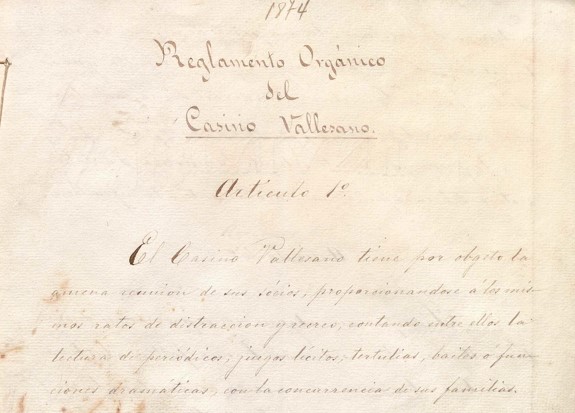 1874
Reglamento Orgánico
del
Casino Vallesano.
Artículo 1º.
El Casino Vallesano tiene por objeto la
amena reunion de sus sócios, proporcionandose á los mis-
mos ratos de distraccion y recreo, contando entre ellos la
lectura de periódicos, juegos lícitos, tertulias, bailes ó fun-
ciones dramáticas, con la concurrencia de sus familias.